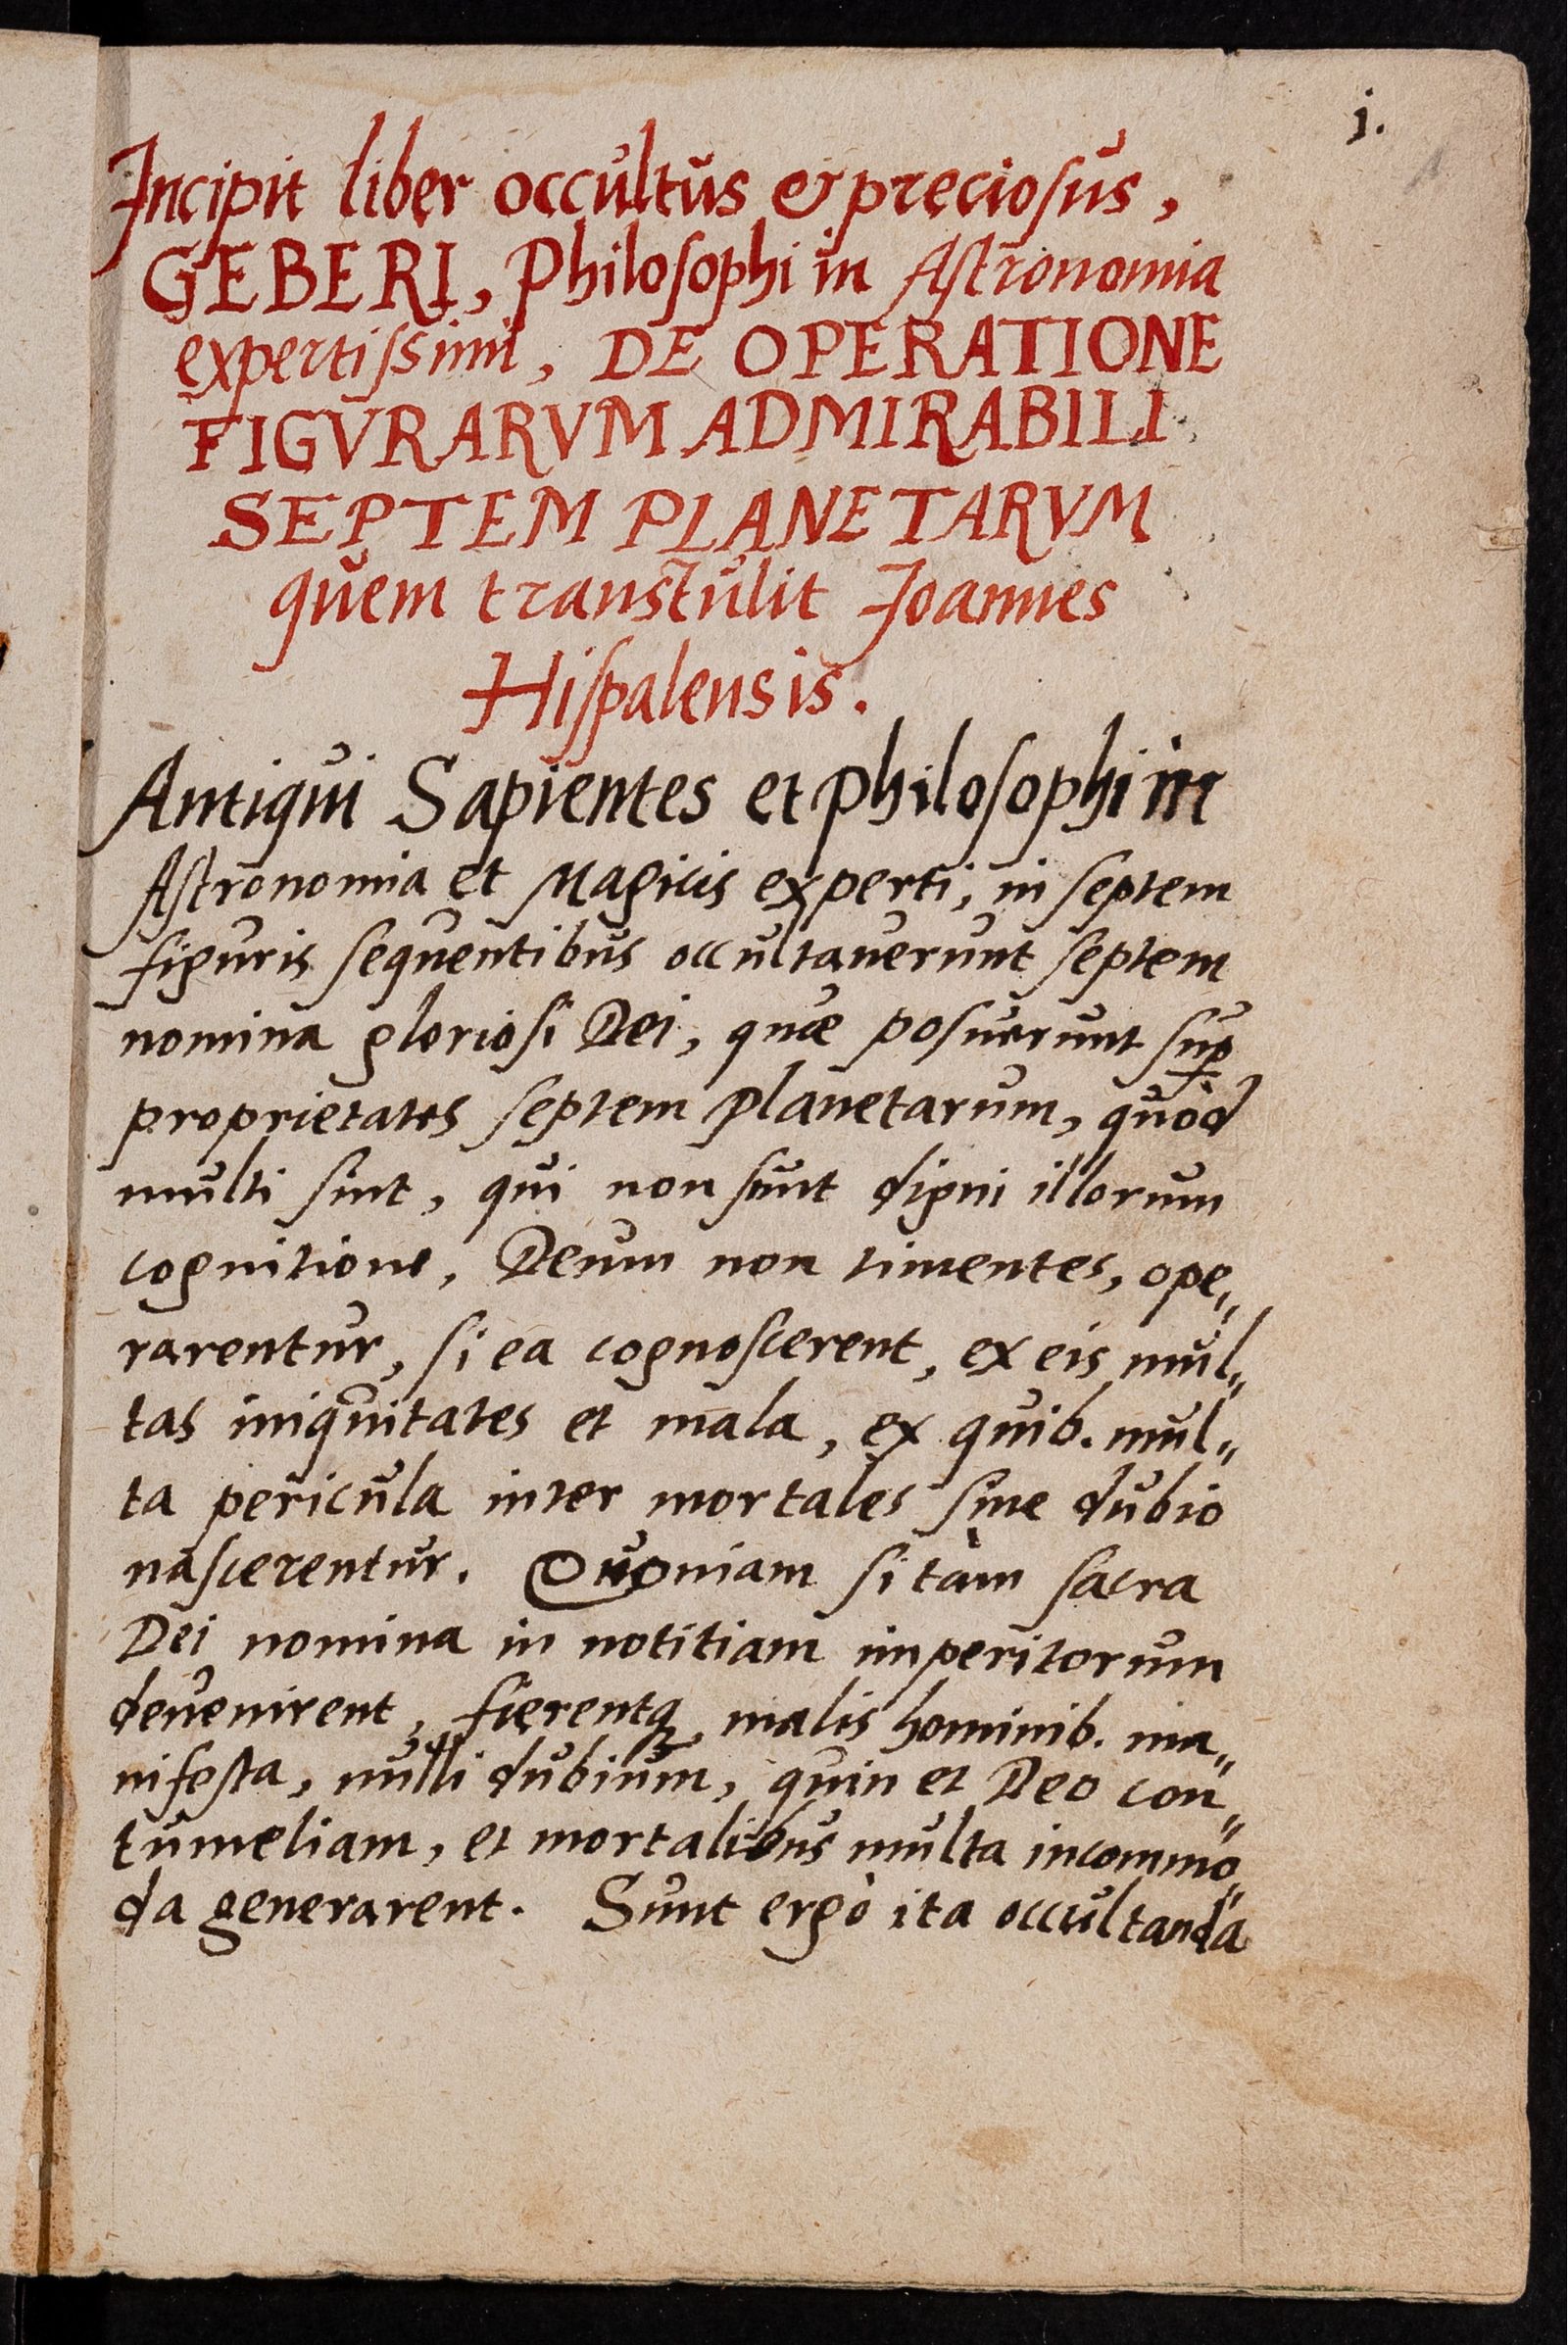 j.
Incipit liber occultus & preciosus,
GEBERI, Philosophi in Astronomia
expertissimi, DE OPERATIONE
FIGVRARVM ADMIRABILI
SEPTEM PLANETARVM
quem transtulit Joannes
Hispalensis.
Antiqui Sapientes et philosophi in
Astronomia et Magicis experti, in septem
figuris sequentibus occultauerunt septem
nomina gloriosi Dei, quæ posuerunt sup
proprietates septem planetarum, quòd
multi sint, qui non sunt digni illorum
cognitione, Deum non timentes, ope„
rarentur, si ea cognoscerent, ex eis mul„
tas iniquitates et mala, ex quib. mul„
ta pericula inter mortales sine dubio
nascerentur. Quoniam si tàm sacra
Dei nomina in notitiam imperitorum
deuenirent, fierentq; malis hominib. ma„
nifesta, nulli dubium, quin et Deo con„
tumeliam, et mortalibus multa incommo„
da generarent. Sunt ergò ita occultanda